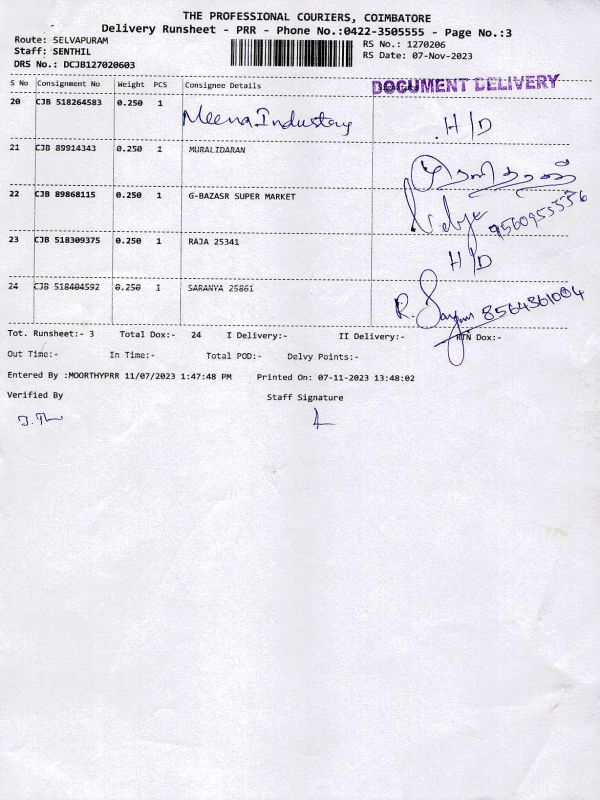 THE PROFESSIONAL COURIERS, COIMBATORE
Delivery Runsheet - PRR - Phone No.:0422-3505555 - Page No.:3
Route: SELVAPURAM
Staff: SENTHIL
DRS No.: DCJB127020603
RS No.: 1270206
RS Date: 07-Nov-2023
S No Consignment No Weight PCS Consignee Details
DOCUMENT DELIVERY
20 CJB 518264583 0.250 1 Meena Industory H/D
21 CJB 89914343 0.250 1 MURALIDARAN
22 CJB 89868115 0.250 1 G-BAZASR SUPER MARKET 9560955556
23 CJB 518309375 0.250 1 RAJA 25341 H/D
24 CJB 518404592 0.250 1 SARANYA 25861 R. 8564361004
Tot. Runsheet:- 3 Total Dox:- 24 I Delivery:- II Delivery:- RTN Dox:-
Out Time:- In Time:- Total POD:- Delvy Points:-
Entered By :MOORTHYPRR 11/07/2023 1:47:48 PM Printed On: 07-11-2023 13:48:02
Verified By Staff Signature